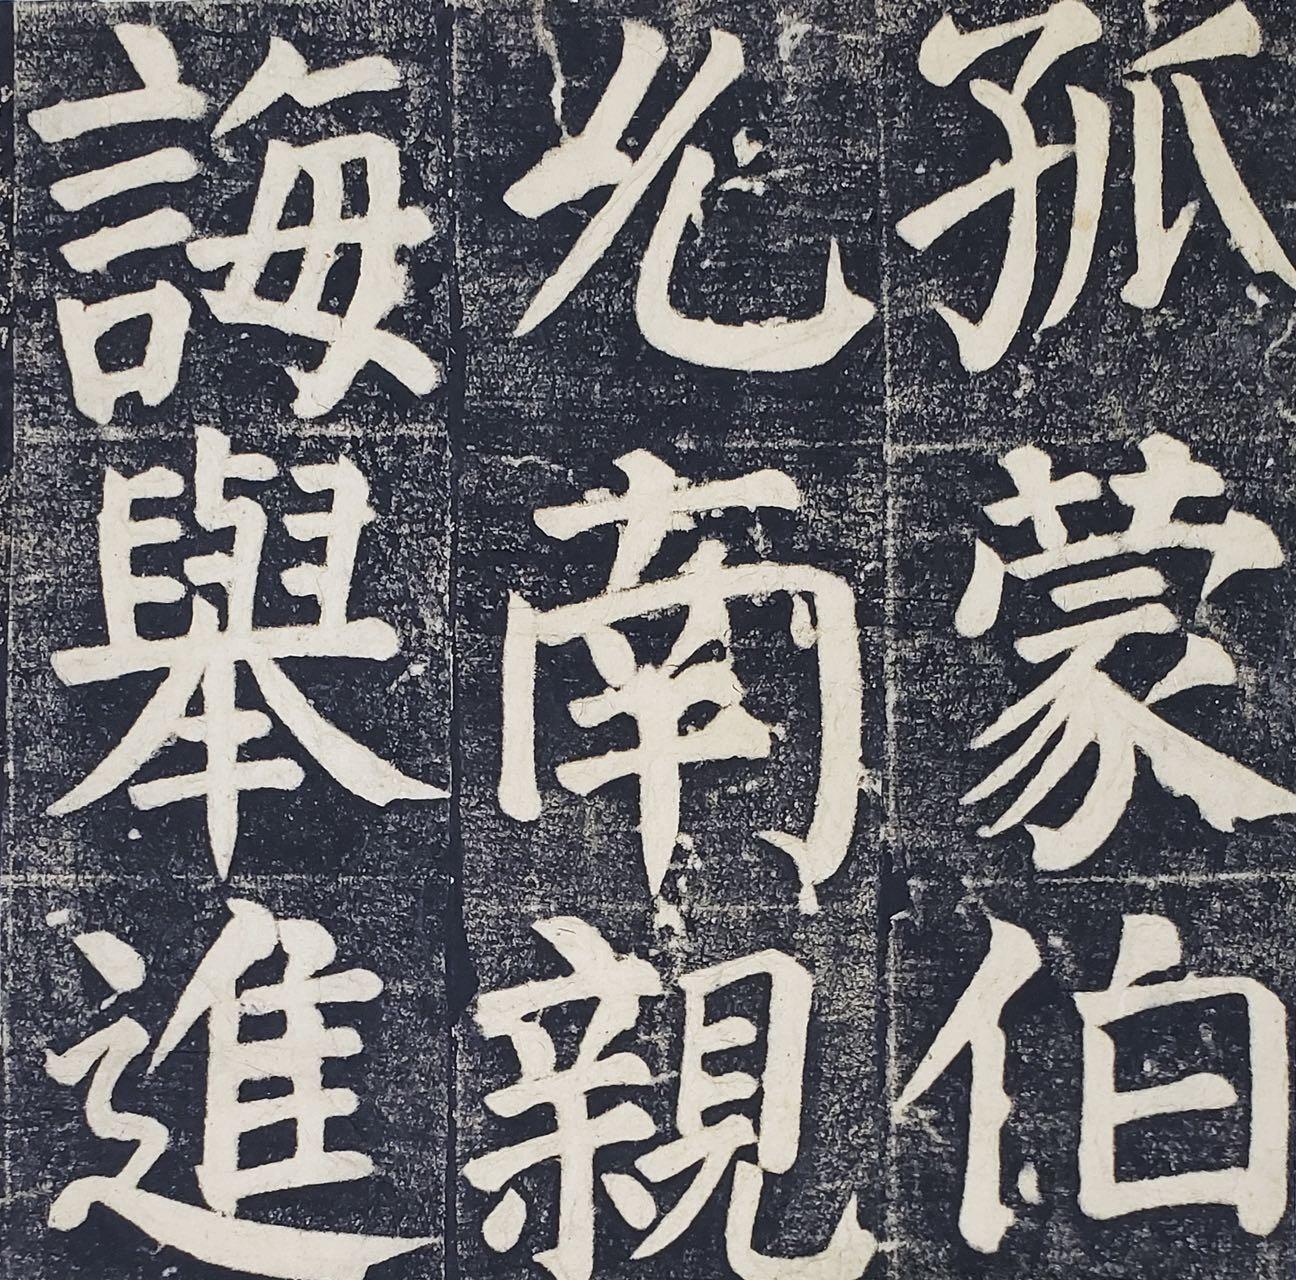 孤蒙伯
允南親
誨舉進